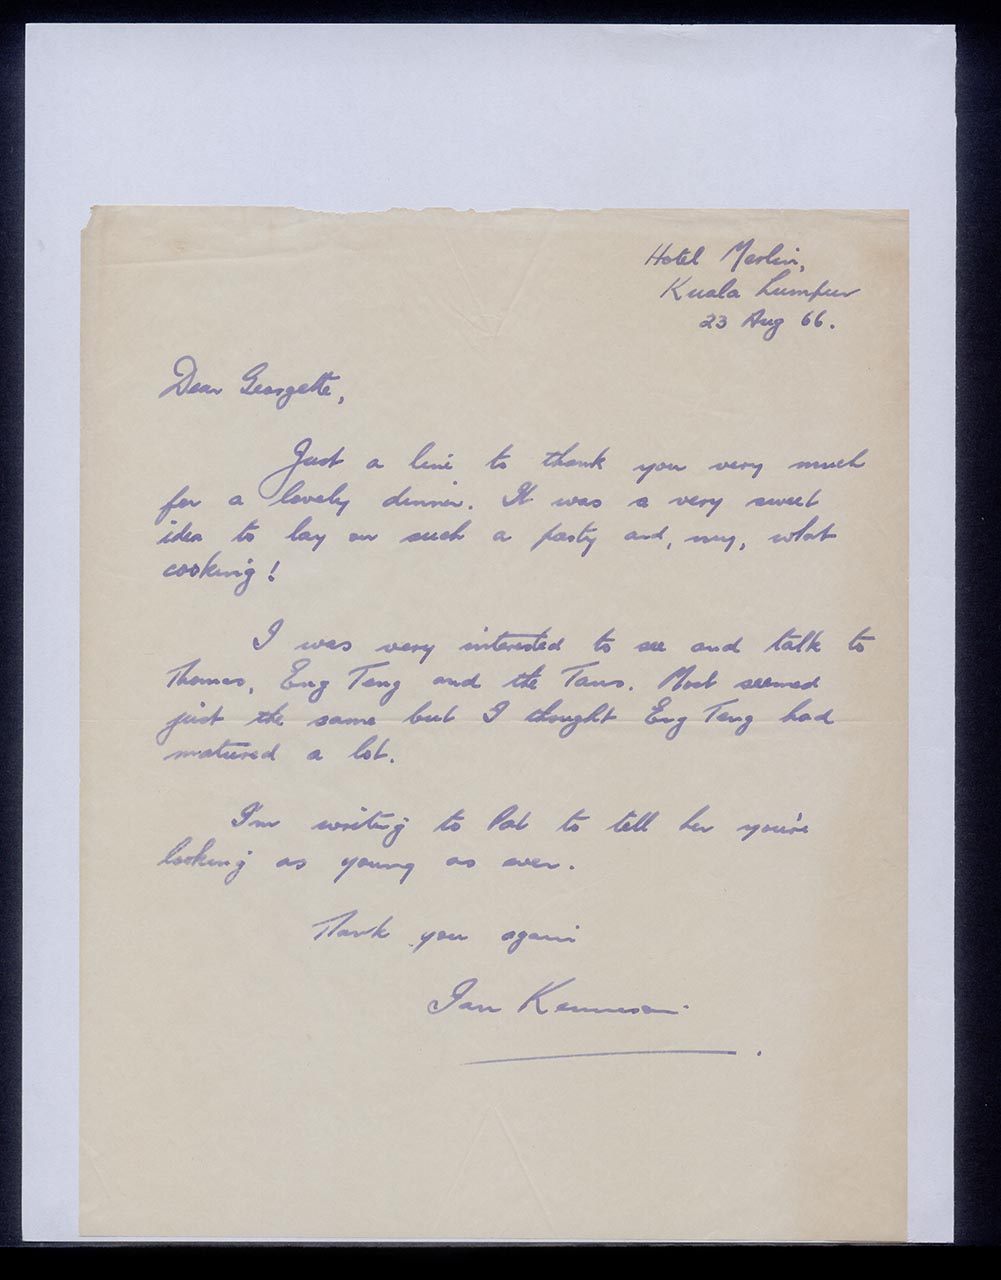 Hotel Merlin,
Kuala Lumpur
23 Aug 66.
Dear Georgette,
Just a line to thank you very much
for a lovely dinner. It was a very sweet
idea to lay on such a party and, my, what
cooking!
I was very interested to see and talk to
Thomas, Eng Teng and the Tans. Most seemed
just the same but I thought Eng Teng had
matured a lot.
I'm writing to Pat to tell her you're
looking as young as ever.
Thank you again
Ian Kennison.